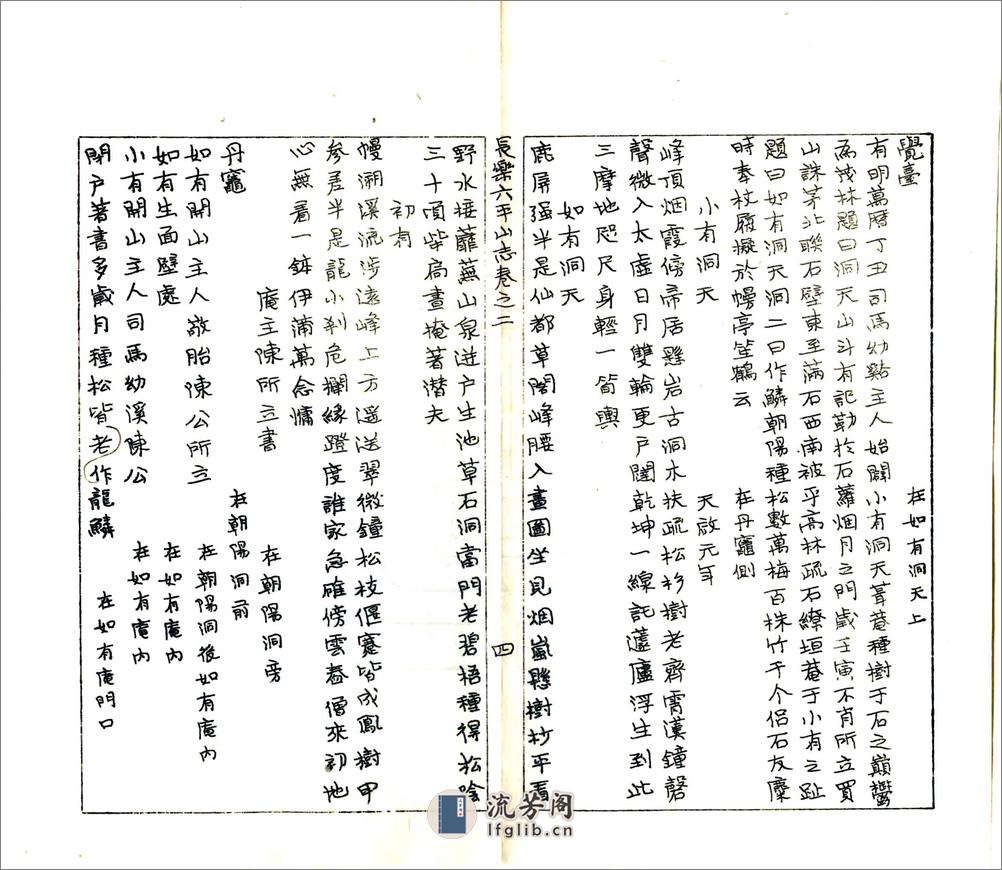 覺臺　在如有洞天上
有明萬曆丁丑司馬幼點主人始闢小有洞天葺菴種樹于石之巔鬱
為茂林題曰洞天山斗有記勒於石蘿烟月之門歲壬寅不肖所立買
山誅茅北聯石壁東至滿石西南被乎高林疏石繚垣菴于小有之趾
題曰如有洞天洞二曰作鱗朝陽種松數萬梅百株竹千个侶石友麋
時奉杖履擬於幔亭笙鶴云　在丹竈側
小有洞天　天啟元年
峰頂烟霞傍帝居懸岩古洞木扶疏松杉樹老齊霄漢鐘磬
聲微入太虛日月雙輪更戶闥乾坤一線託蘧廬浮生到此
三摩地咫尺身輕一筍輿
如有洞天
鹿屏强半是仙都草閣峰腰入畫圖坐見烟嵐懸樹杪平看
長樂六平山志卷之二　四
野水接蘼蕪山泉迸户生池草石洞當門老碧梧種得松陰
三十頃柴扃晝掩著潜夫
初有
幔溯溪流涉遠峰上方遥送翠微鐘松枝偃蹇皆成鳳樹甲
參差半是龍小刹危攔緣蹬度誰家急碓傍雲舂僧來初地
心無着一鉢伊蒲萬念慵
庵主陳所立書　在朝陽洞旁
丹竈　在朝陽洞前
如有開山主人敬胎陳公所立　在朝陽洞後如有庵內
如有生面壁處　在如有庵內
小有開山主人司馬幼溪陳公　在如有庵內
閉户著書多歲月種松皆老作龍鱗　在如有庵門口
流芳阁
lfglib.cn